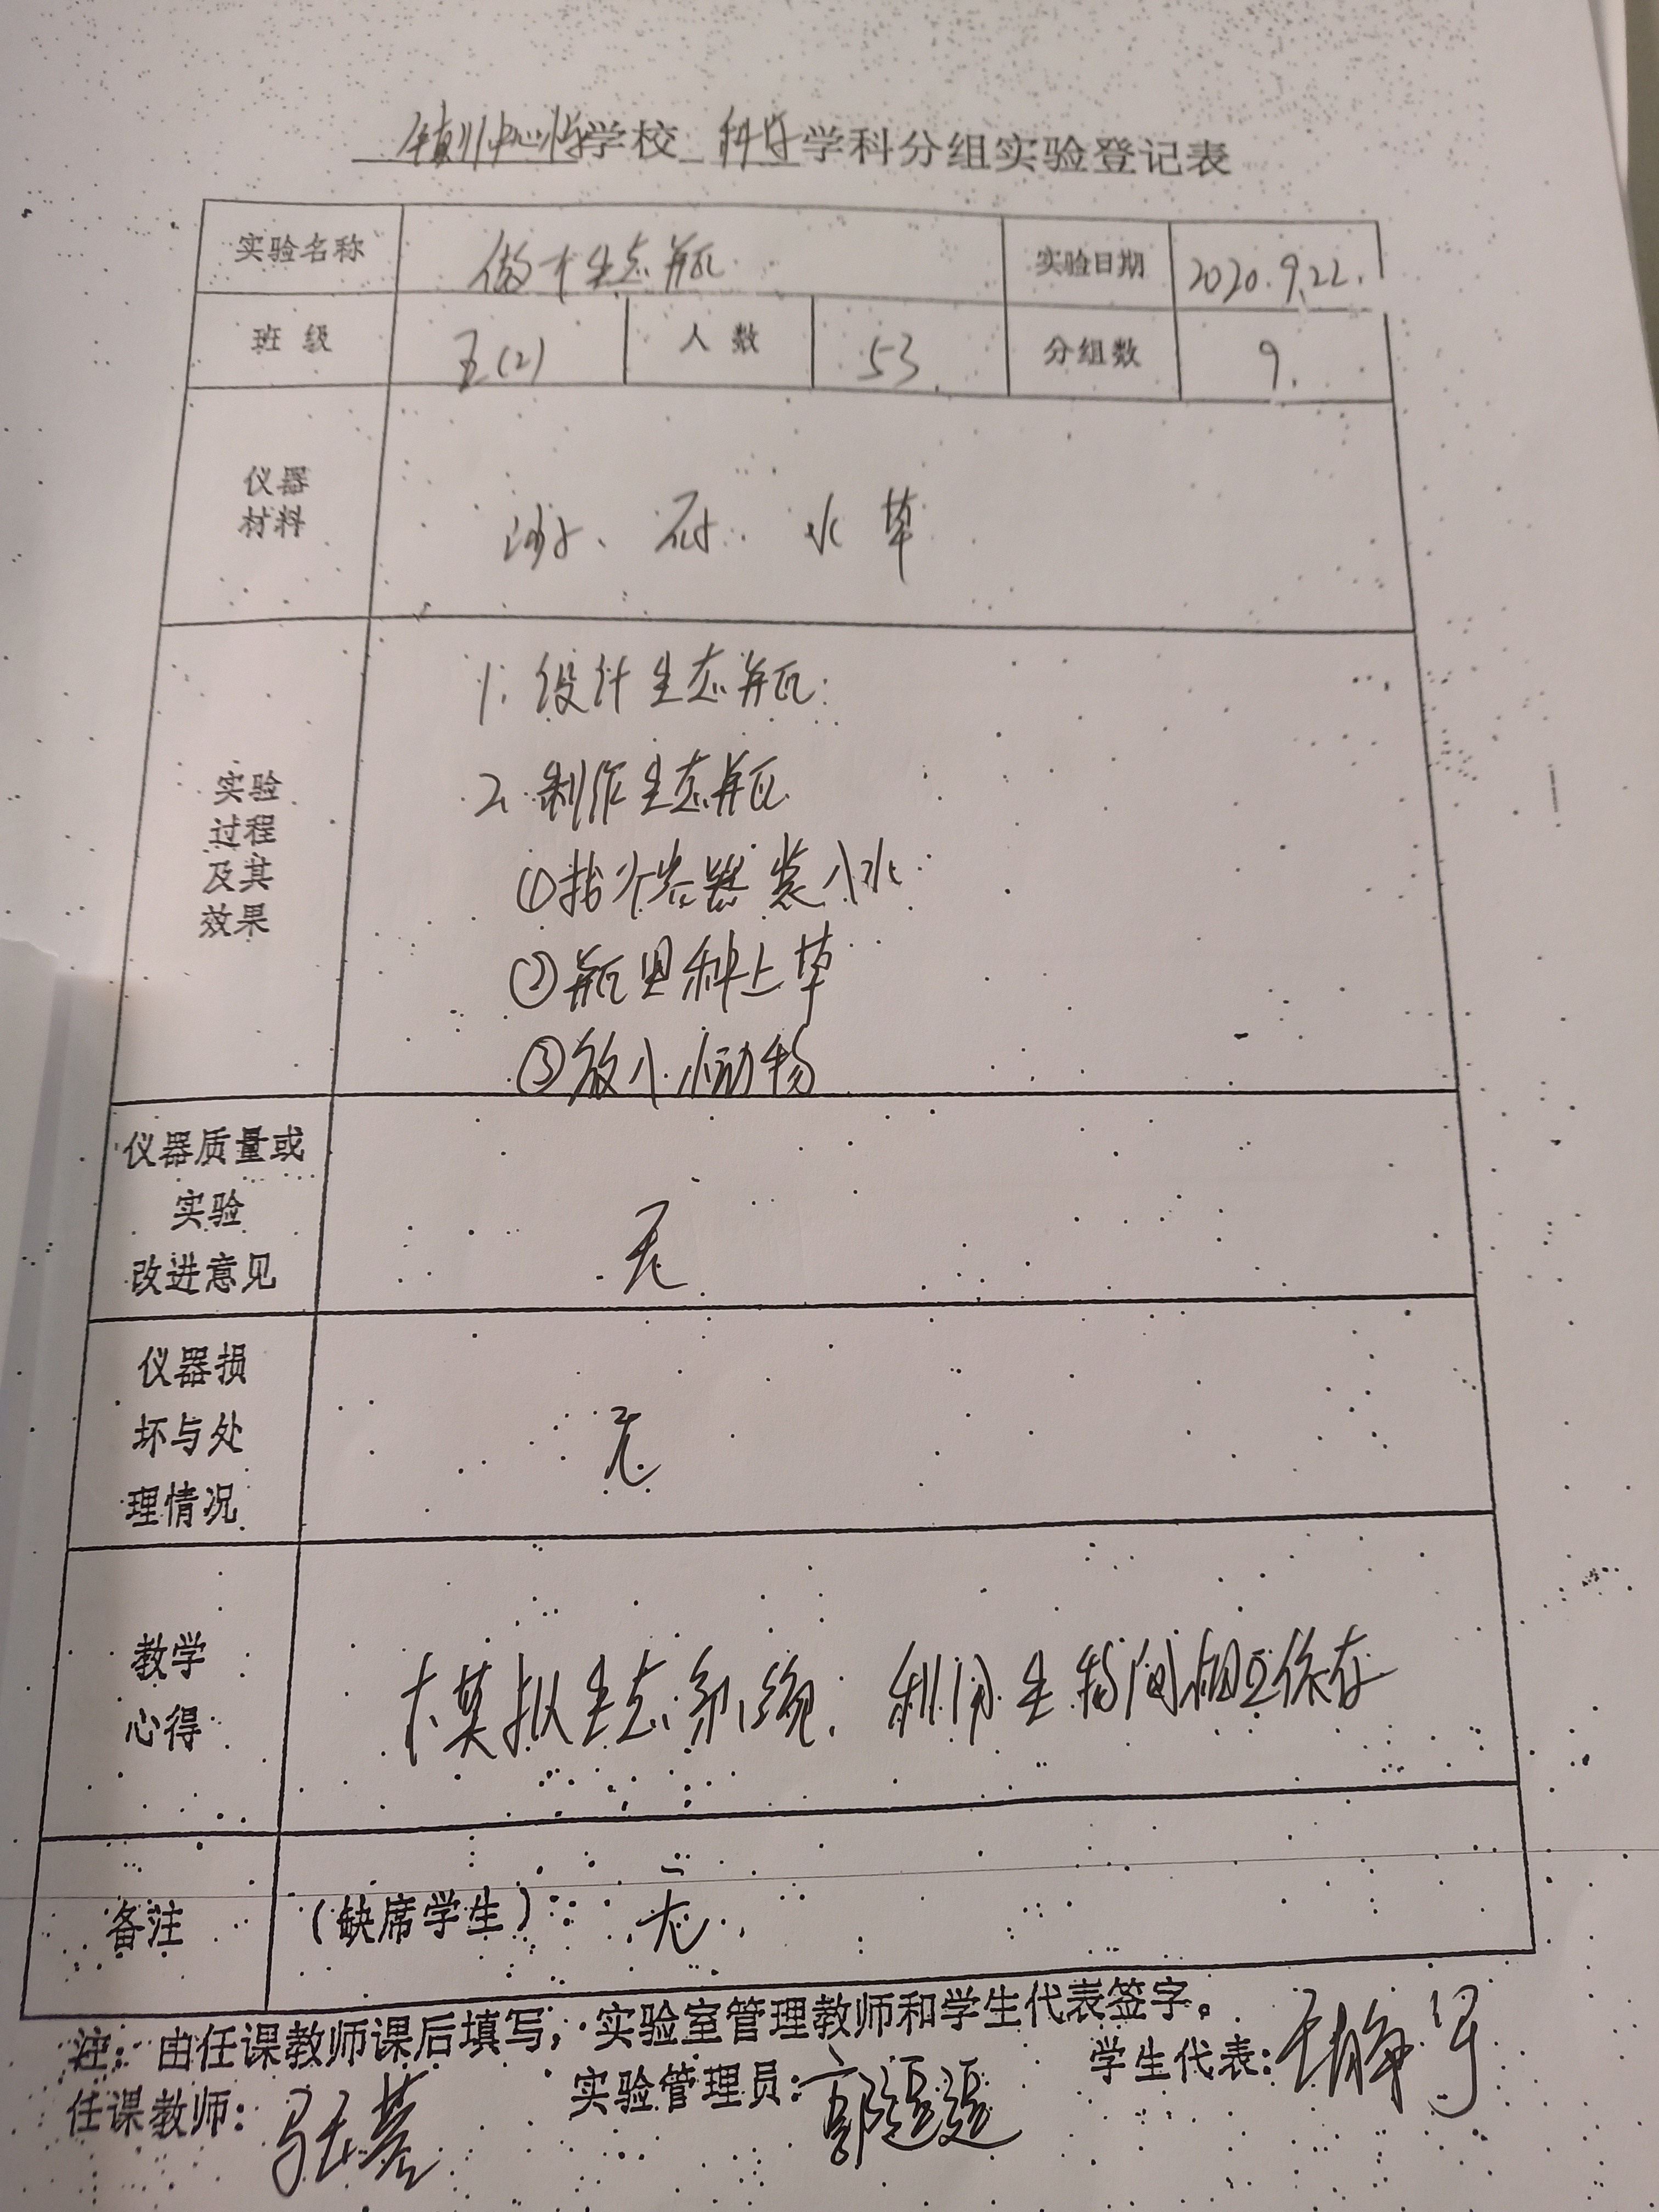 镇川中心小学学校 科学 学科分组实验登记表
实验名称 做个生态瓶 实验日期 2020.9.22.
班级 五(2) 人数 53 分组数 9.
仪器
材料
沙、石、水草
实验
过程
及其
效果
1. 设计生态瓶
2. 制作生态瓶
①找个容器装入水
②瓶里种上草
③放入小动物
仪器质量或
实验
改进意见
无
仪器损
坏与处
理情况
无
教学
心得
模拟生态系统,利用生物间相互依存
备注 (缺席学生): 无
注: 由任课教师课后填写,实验室管理教师和学生代表签字。
任课教师: 实验管理员: 学生代表: